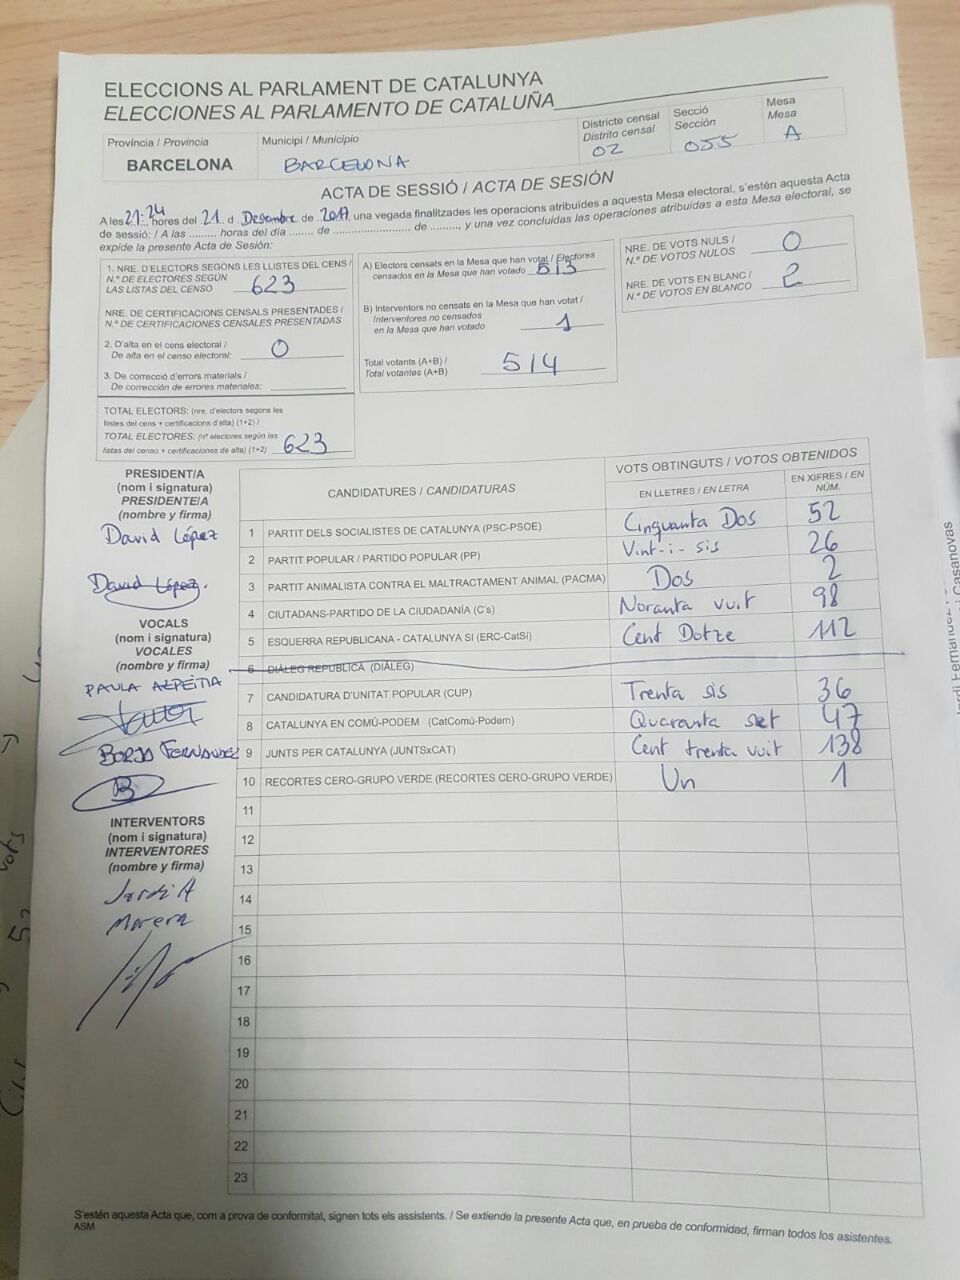 ELECCIONS AL PARLAMENT DE CATALUNYA
ELECCIONES AL PARLAMENTO DE CATALUÑA
Província / Provincia
BARCELONA
Municipi / Municipio
BARCELONA
Districte censal
Distrito censal
02
Secció
Sección
055
Mesa
Mesa
A
ACTA DE SESSIÓ / ACTA DE SESIÓN
A les 21:24 hores del 21 d Desembre de 2017, una vegada finalitzades les operacions atribuïdes a aquesta Mesa electoral, s'estén aquesta Acta
de sessió: / A las ......... horas del día ........ de ........................... de ........., y una vez concluidas las operaciones atribuidas a esta Mesa electoral, se
expide la presente Acta de Sesión:
1. NRE. D'ELECTORS SEGONS LES LLISTES DEL CENS /
N.º DE ELECTORES SEGÚN
LAS LISTAS DEL CENSO 623
NRE. DE CERTIFICACIONS CENSALS PRESENTADES /
N.º DE CERTIFICACIONES CENSALES PRESENTADAS
2. D'alta en el cens electoral /
De alta en el censo electoral: 0
3. De correcció d'errors materials /
De corrección de errores materiales:
TOTAL ELECTORS: (nre. d'electors segons les
llistes del cens + certificacions d'alta) (1+2) /
TOTAL ELECTORES: (nº electores según las
listas del censo + certificaciones de alta) (1+2) 623
A) Electors censats en la Mesa que han votat / Electores
censados en la Mesa que han votado 513
B) Interventors no censats en la Mesa que han votat /
Interventores no censados
en la Mesa que han votado 1
Total votants (A+B) /
Total votantes (A+B) 514
NRE. DE VOTS NULS /
N.º DE VOTOS NULOS 0
NRE. DE VOTS EN BLANC /
N.º DE VOTOS EN BLANCO 2
PRESIDENT/A
(nom i signatura)
PRESIDENTE/A
(nombre y firma)
David López
David López.
VOCALS
(nom i signatura)
VOCALES
(nombre y firma)
PAULA AZPEITIA
BORJA FERNANDEZ
B
INTERVENTORS
(nom i signatura)
INTERVENTORES
(nombre y firma)
Jordi A
Morera
CANDIDATURES / CANDIDATURAS
VOTS OBTINGUTS / VOTOS OBTENIDOS
EN LLETRES / EN LETRA
EN XIFRES / EN NÚM.
1 PARTIT DELS SOCIALISTES DE CATALUNYA (PSC-PSOE) Cinquanta Dos 52
2 PARTIT POPULAR / PARTIDO POPULAR (PP) Vint-i-sis 26
3 PARTIT ANIMALISTA CONTRA EL MALTRACTAMENT ANIMAL (PACMA) Dos 2
4 CIUTADANS-PARTIDO DE LA CIUDADANÍA (C's) Noranta vuit 98
5 ESQUERRA REPUBLICANA - CATALUNYA SI (ERC-CatSí) Cent Dotze 112
6 DIÀLEG REPUBLICÀ (DIÀLEG)
7 CANDIDATURA D'UNITAT POPULAR (CUP) Trenta sis 36
8 CATALUNYA EN COMÚ-PODEM (CatComú-Podem) Quaranta set 47
9 JUNTS PER CATALUNYA (JUNTSxCAT) Cent trenta vuit 138
10 RECORTES CERO-GRUPO VERDE (RECORTES CERO-GRUPO VERDE) Un 1
11
12
13
14
15
16
17
18
19
20
21
22
23
S'estén aquesta Acta que, com a prova de conformitat, signen tots els assistents. / Se extiende la presente Acta que, en prueba de conformidad, firman todos los asistentes.
ASM
i Casanovas
vots
52